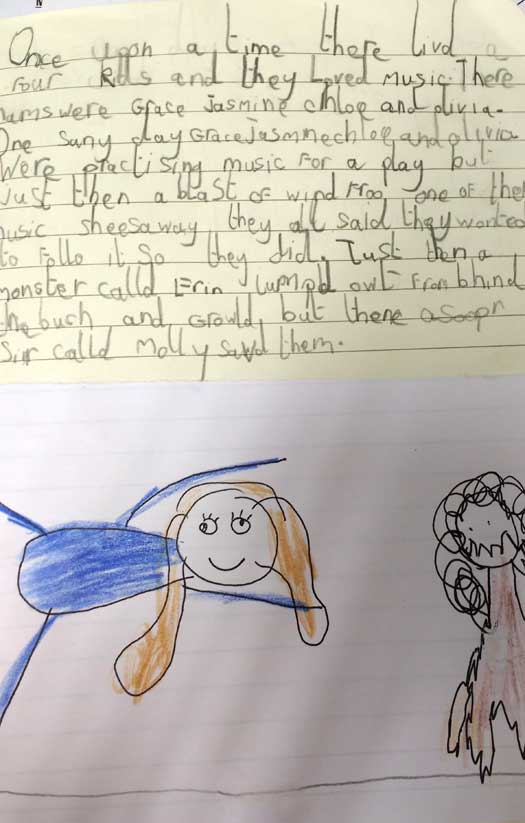 Once upon a time there livd a
four kids and they Loved music. There
nams were Grace Jasmine chloe and olivia.
One suny day Grace Jasmine chloe and olivia
were practising music for a play but
Just then a blast of wind Frog one of the
music sheesaway they all said they wonted
to follo it so they did. Just then a
monster calld Erin Jumpd owt From bhind
the bush and Growld, but there
calld Molly savd them.